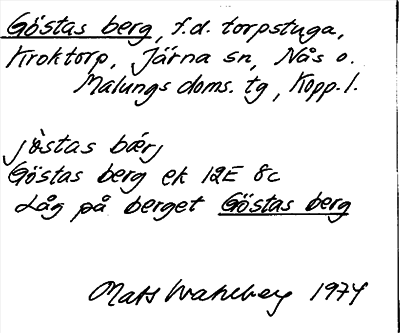 Göstas berg, f.d. torpstuga,
Kroktorp, Järna sn, Nås o.
Malungs doms. tg, Kopp. l.
jö̀stas bǽrj
Göstas berg ek 12E 8c
Låg på berget Göstas berg
Mats Wahlberg 1974